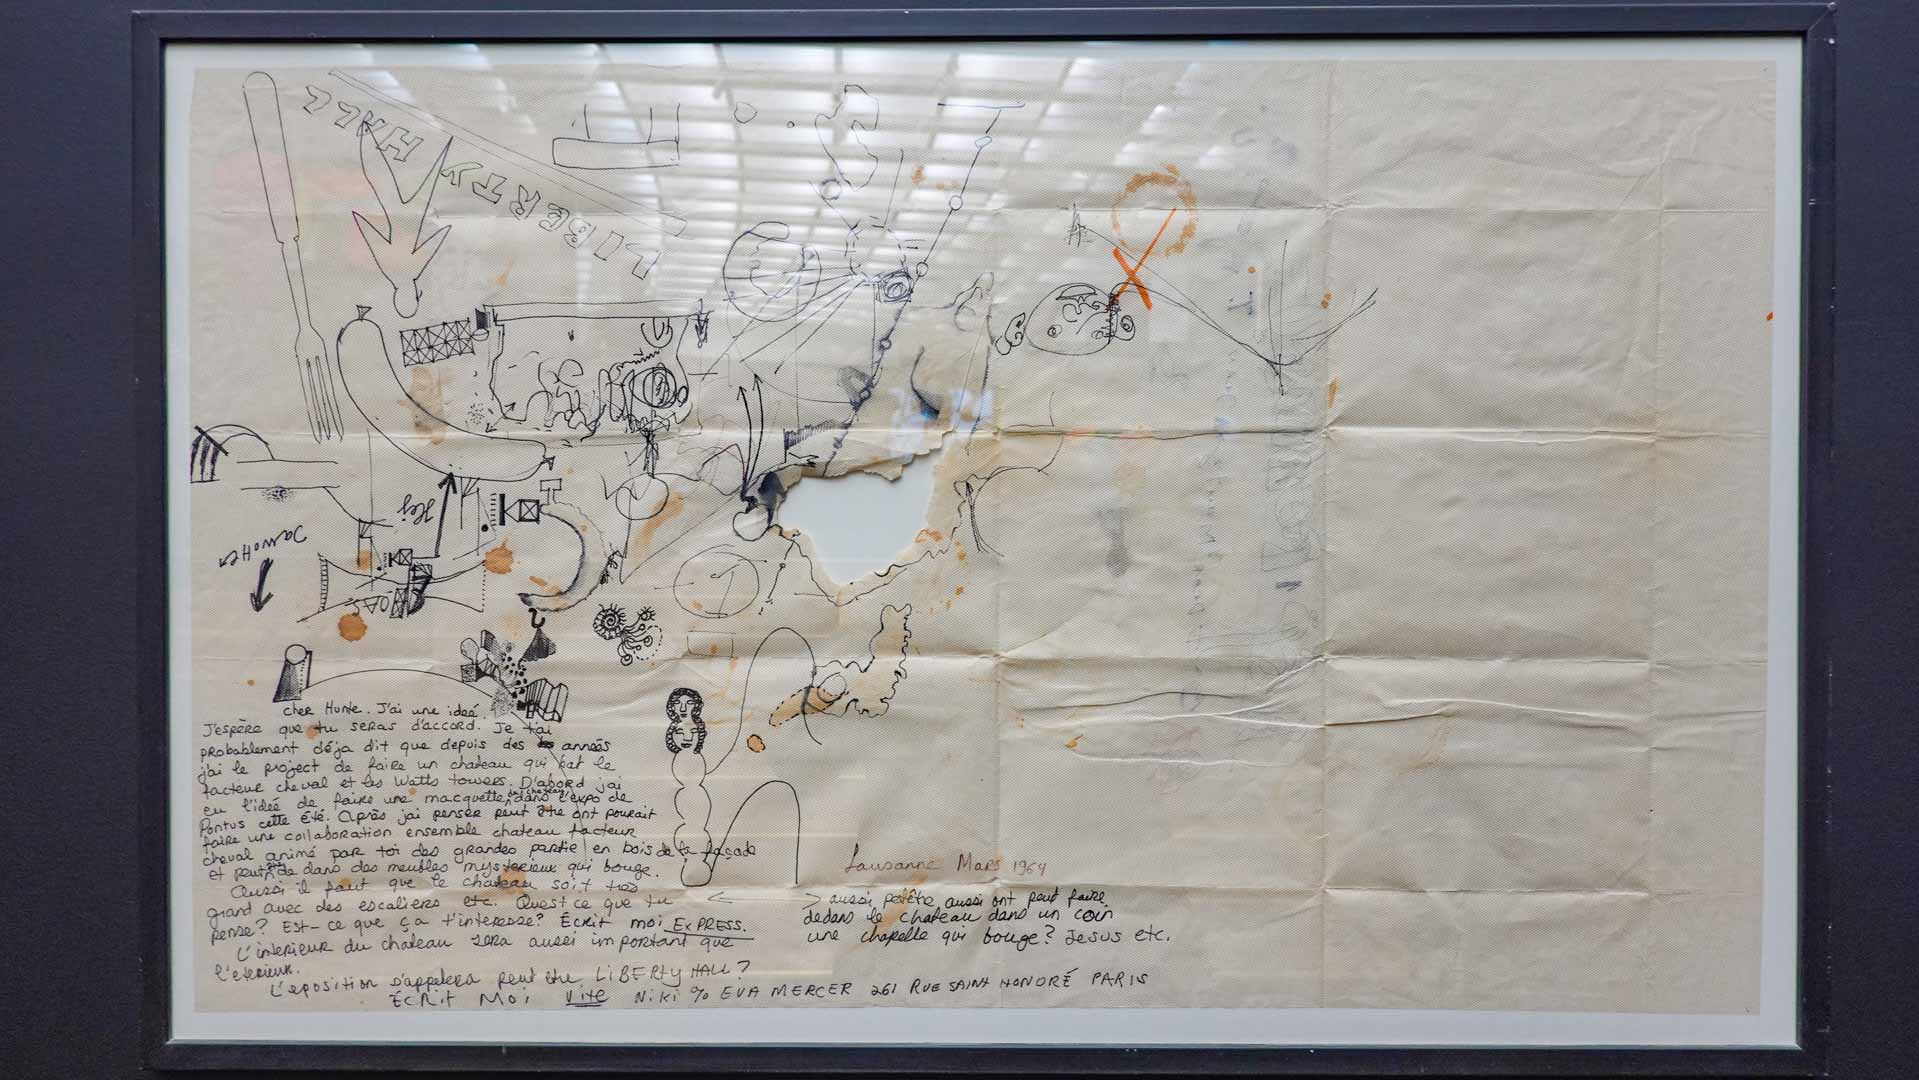 LIBERTY HALL
Hej
cher Hunte. J'ai une ideé.
J'espère que tu seras d'accord. Je t'ai
probablement déja dit que depuis des années
j'ai le project de faire un chateau qui bat le
facteur cheval et les Watts towers. D'abord j'ai
eu l'ideé de faire une macquette du chateau dans l'expo de
Pontus cette été. Après j'ai penser peut être ont pourait
faire une collaboration ensemble chateau facteur
cheval animé par toi des grandes partie en bois de la façade
et peut être dans des meubles mysterieux qui bouge.
Aussi il faut que le chateau soit tres
grand avec des escaliers etc. Quest ce que tu
pense? Est-ce que ça t'interesse? Écrit moi ExPRESS.
L'interieur du chateau sera aussi important que
l'eterieur.
L'eposition s'appelera peut etre LiBERtY HALL?
ÉCRit Moi Vite Niki % EVA MERCER 261 RUE SAINT HONORÉ PARIS
Lausanne Mars 1964
> aussi petêtre aussi ont peut faire
dedans le chateau dans un coin
une chapelle qui bouge? Jesus etc.